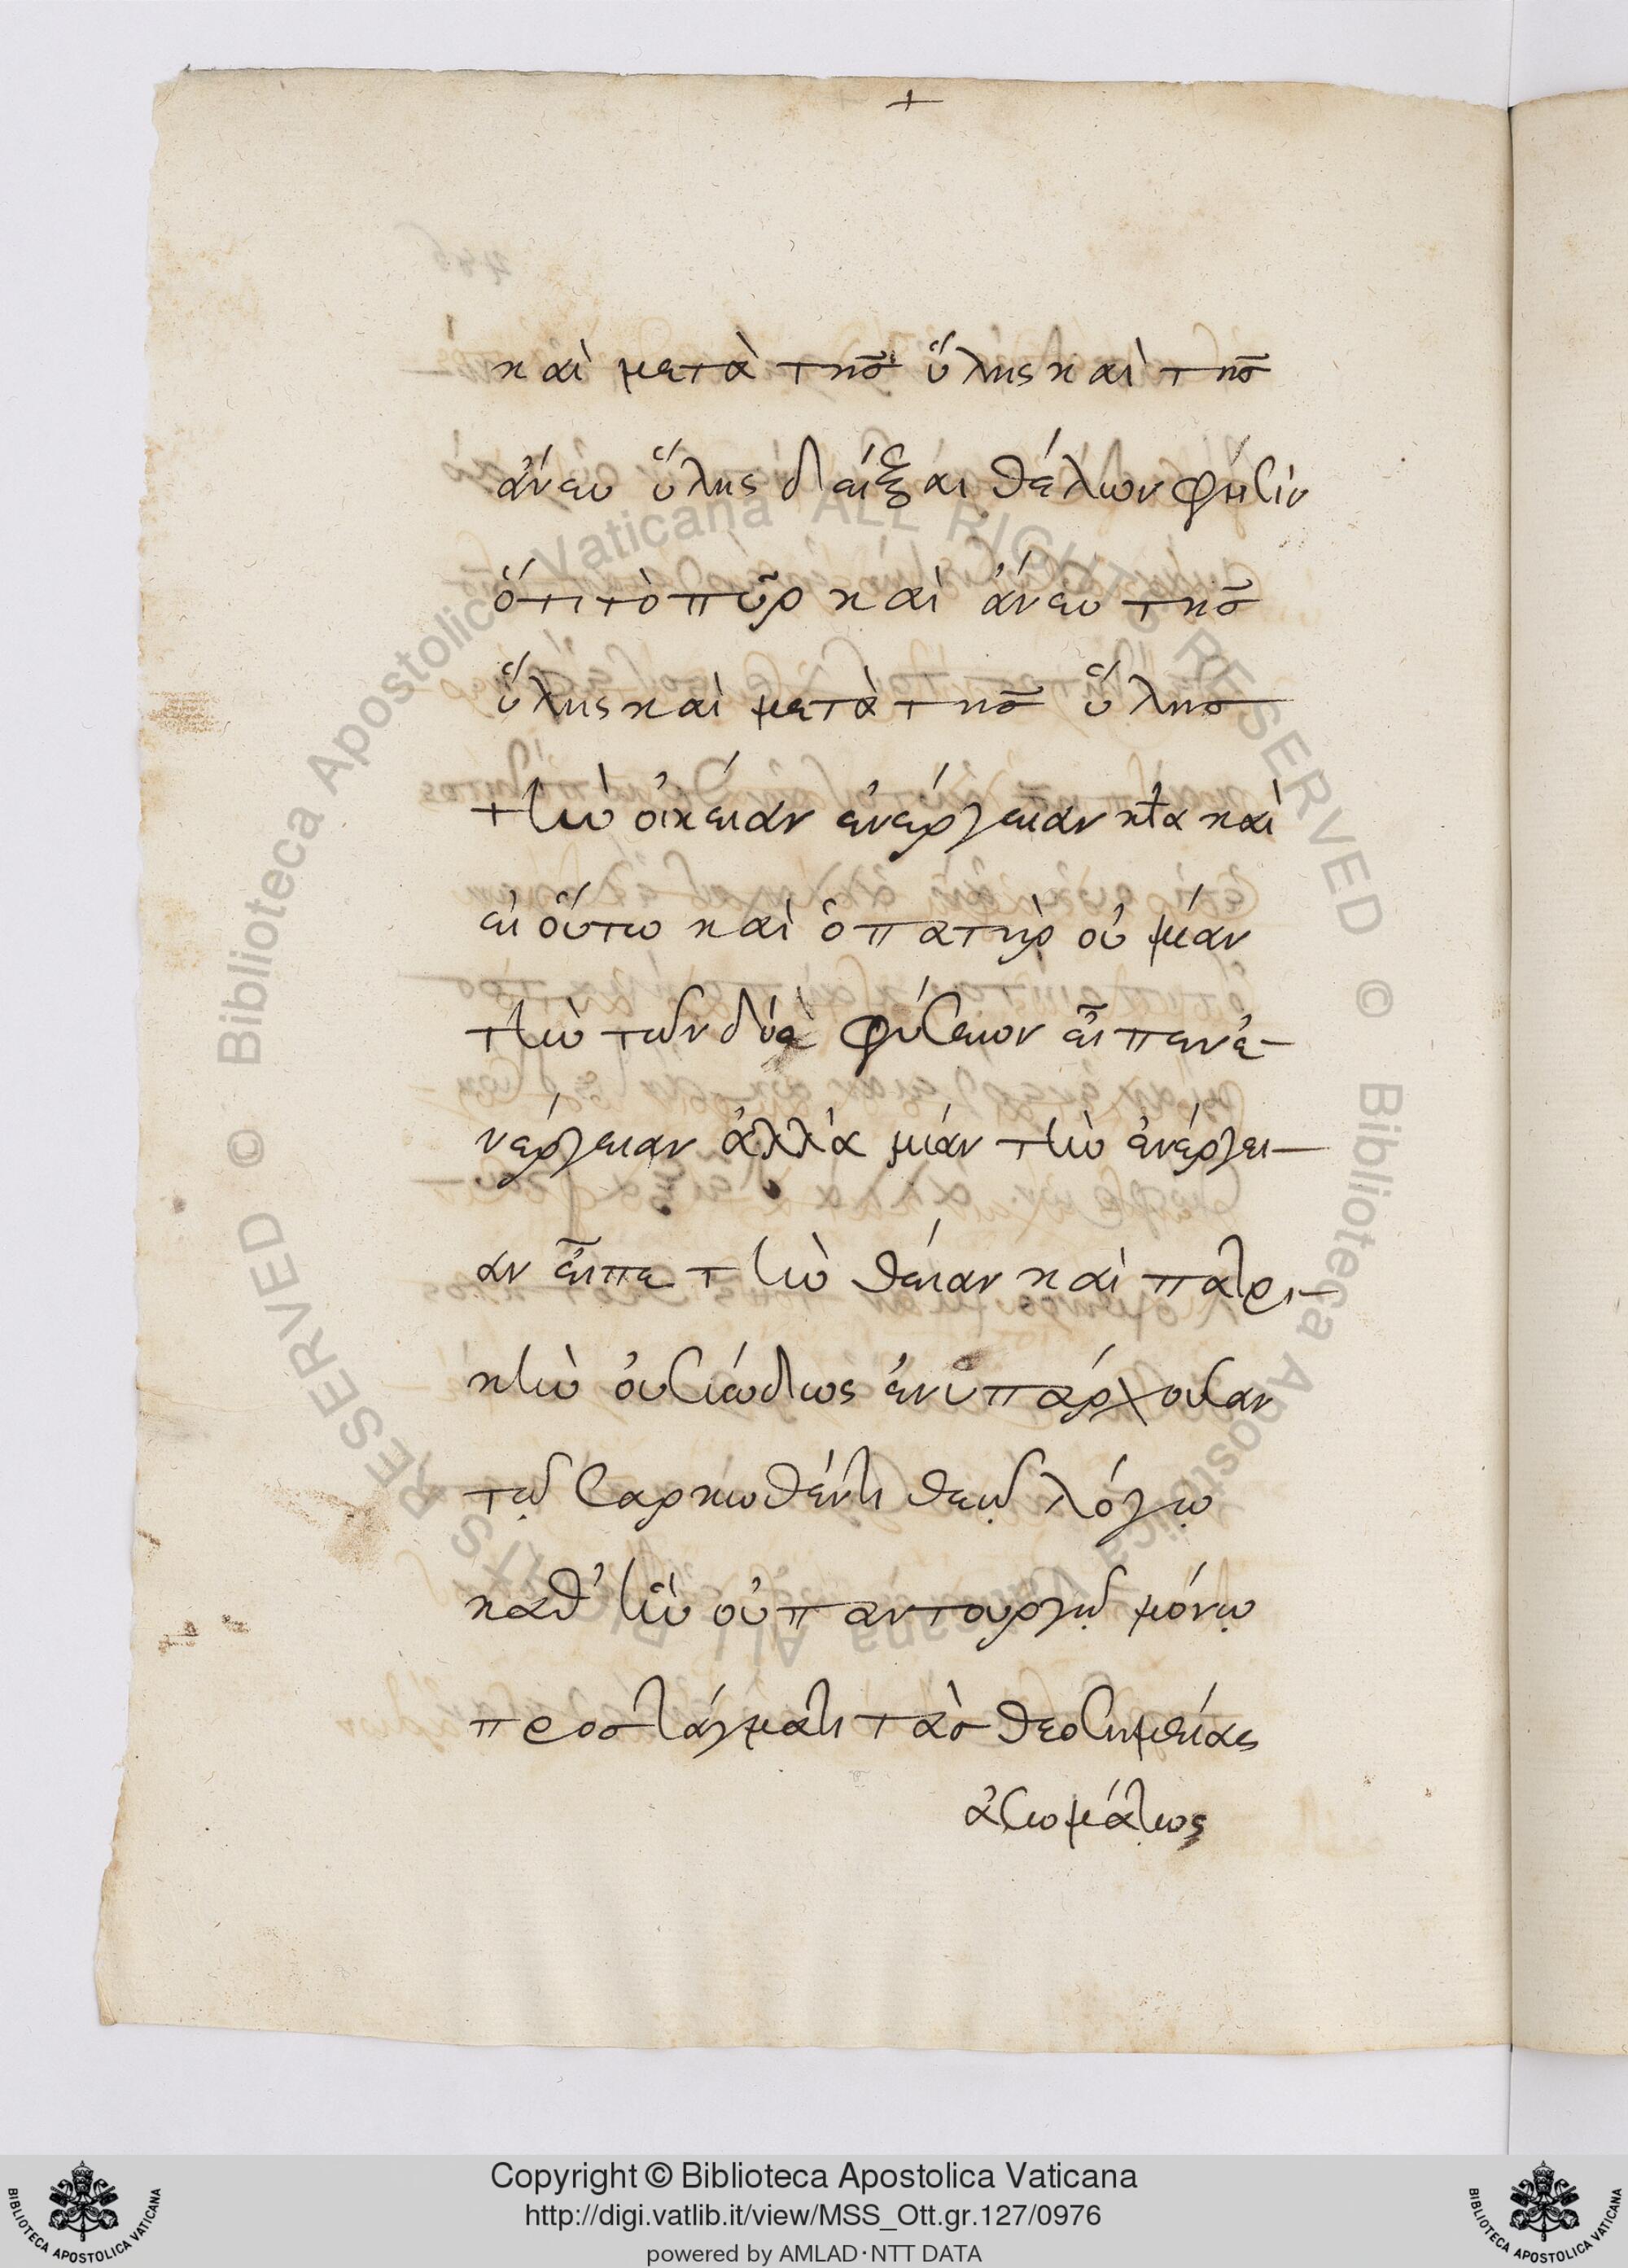 +
καὶ μετὰ τῆς ὕλης καὶ τῆς
ἄνευ ὕλης δεῖξαι θέλων φησὶν
ὅτι τὸ πῦρ καὶ ἄνευ τῆς
ὕλης καὶ μετὰ τῆς ὕλης
τὴν οἰκείαν ἐνέργειαν κέκτηται
εἰ οὕτω καὶ ὁ πατὴρ οὐ μίαν
τὴν τῶν δύο φύσεων εἶπεν ἐ-
νέργειαν ἀλλὰ μίαν τὴν ἐνέργει-
αν εἶπε τὴν θείαν καὶ πατρι-
κὴν οὐσιωδῶς ἐνυπάρχουσαν
τῷ σαρκωθέντι θεῷ λόγῳ
καθ' ἣν οὐ παντουργῷ μόνῳ
προστάγματι τὰς θεοσημείας
ἀσωμάτως
Copyright © Biblioteca Apostolica Vaticana
http://digi.vatlib.it/view/MSS_Ott.gr.127/0976
powered by AMLAD·NTT DATA